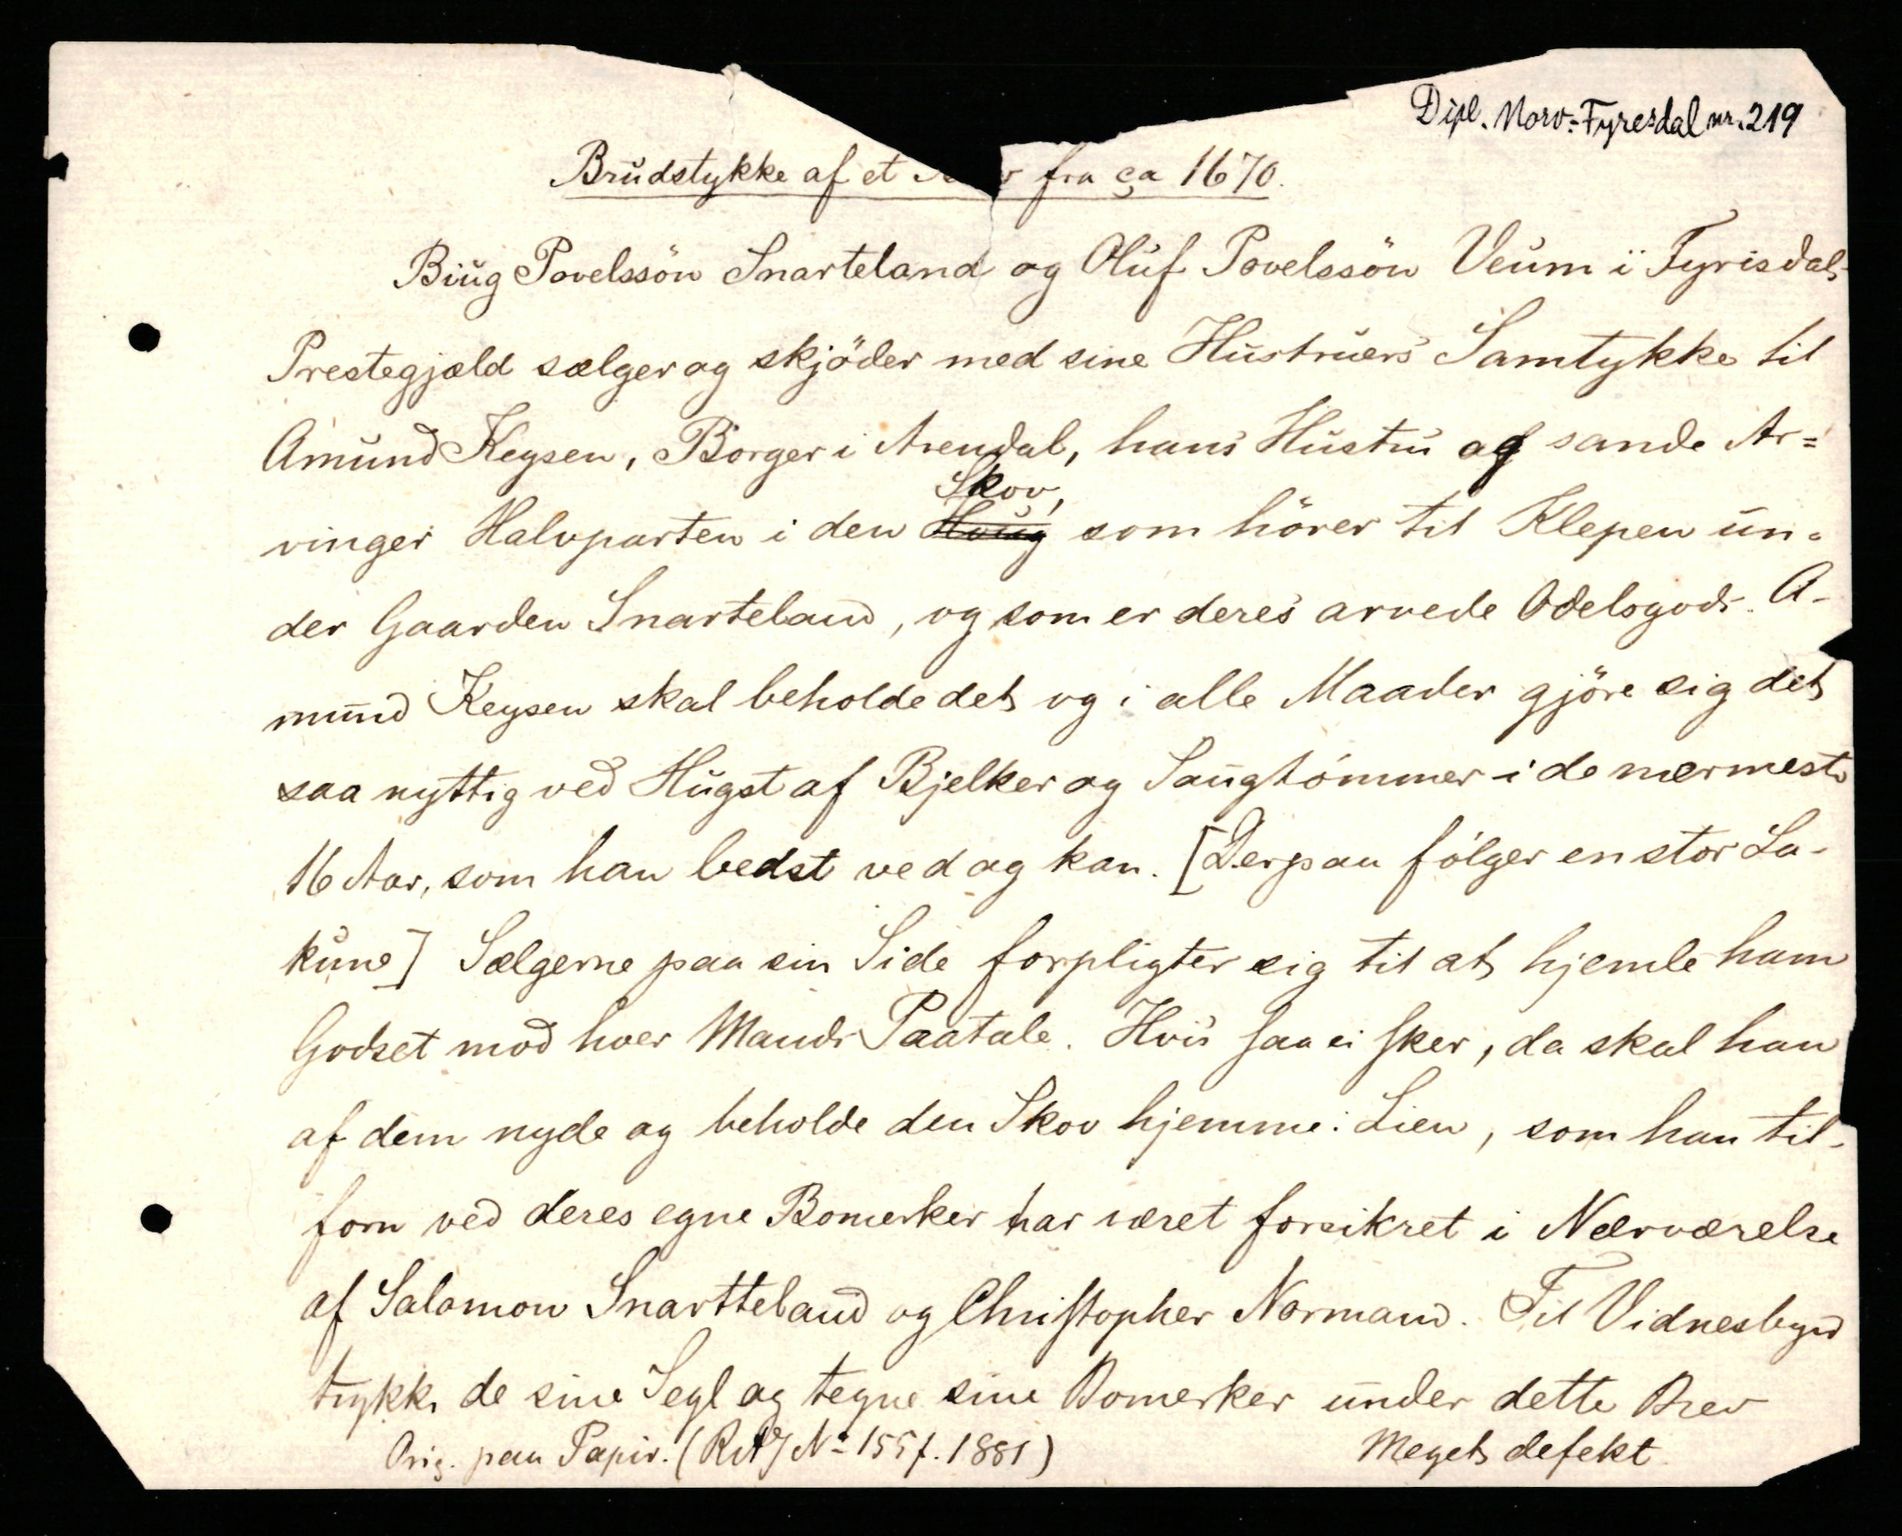 Dipl. Norv. Fyresdal nr. 219
Brudstykke af et fra ca 1670.
Biug Povelssön Snarteland og Oluf Povelssön Veum i Fyrisdals
Prestegjæld sælger og skjöder med sine Hustruers Samtykke til
Amund Keysen, Borger i Arendal, hans Hustru og sande Ar=
Skov,
vinger Halvparten i den Houg som hörer til Klepen un-
der Gaarden Snarteland, og som er deres arvede Odelsgods. A-
mund Keysen skal beholde det og i alle Maader gjöre sig det
saa nyttig ved Hugst af Bjelker og Saugtömmer i de nærmeste
16 Aar, som han bedst ved og kan. [Derpaa fölger en stor La-
kune] Sælgerne paa sin Side forpligter sig til at hjemle ham
Godset mod hver Mands Paatale. Hvis saa ei sker, da skal han
af dem nyde og beholde den Skov hjemme i Lien, som han til-
forn ved deres egne Bomerker har været forsikret i Nærværelse
af Salomon Snartteland og Christopher Normand. Til Vidnesbyrd
trykke de sine Segl og tegne sine Bomerker under dette Brev
Orig. paa Papir. (RA J No 155 f. 1881) Meget defekt.